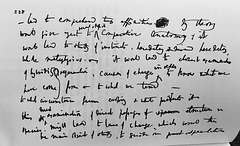 228
led to comprehend true affinities. My theory
would give zest to recent & Fossil Comparative Anatomy: & it
would lead to study of instincts, heredity & mind heredity,
whole metaphysics. — it would lead to closest examination
of hybridity & generation, causes of change in order to know what we
have come from & to what we tend — to
what circumstances favour crossing & what prevents it
this & direct examination of direct passages of structure in
species, might lead to laws of change, which would then
be main object of study, to guide our speculations